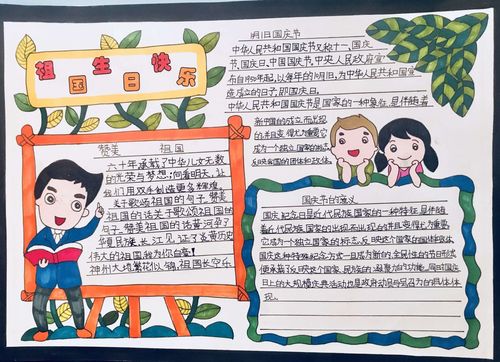 祖国生日快乐
赞美 祖国
六十年承载了中华儿女无数
的光荣与梦想;向着明天,让
我们用双手创造更多辉煌,
关于歌颂祖国的句子赞美
祖国的话关于歌颂祖国的
句子,赞美祖国的话黄河孕了
华夏民族,长江见证了炎黄历史
伟大的祖国我为你自豪!
神州大地繁花似锦,祖国长空乐
10月1日国庆节
中华人民共和国国庆节又称十一、国庆
节、国庆日、中国国庆节,中央人民政府宣
布自1949年起,以每年的10月1日,为中华人民共和国宣
告成立的日子,即国庆日。
中华人民共和国国庆节是国家的一种象征,是伴随着
新中国的成立而出现
的并且变得尤为重要它
成为一个独立国家的标志,
反映我国的国体和政体。
国庆节的意义
国庆纪念日是近代民族国家的一种特征是伴随
着近代民族国家的出现而出现的并且变得尤为重要
它成为一个独立国家的标志,反映这个国家的国体和政体
国庆这种特殊纪念方式一旦成为新的、全民性的节日形式
便承载了反映这个国家、民族的凝聚力的功能,同时国庆
日上的大规模庆典活动也是政府动员与号召力的具体体
现。